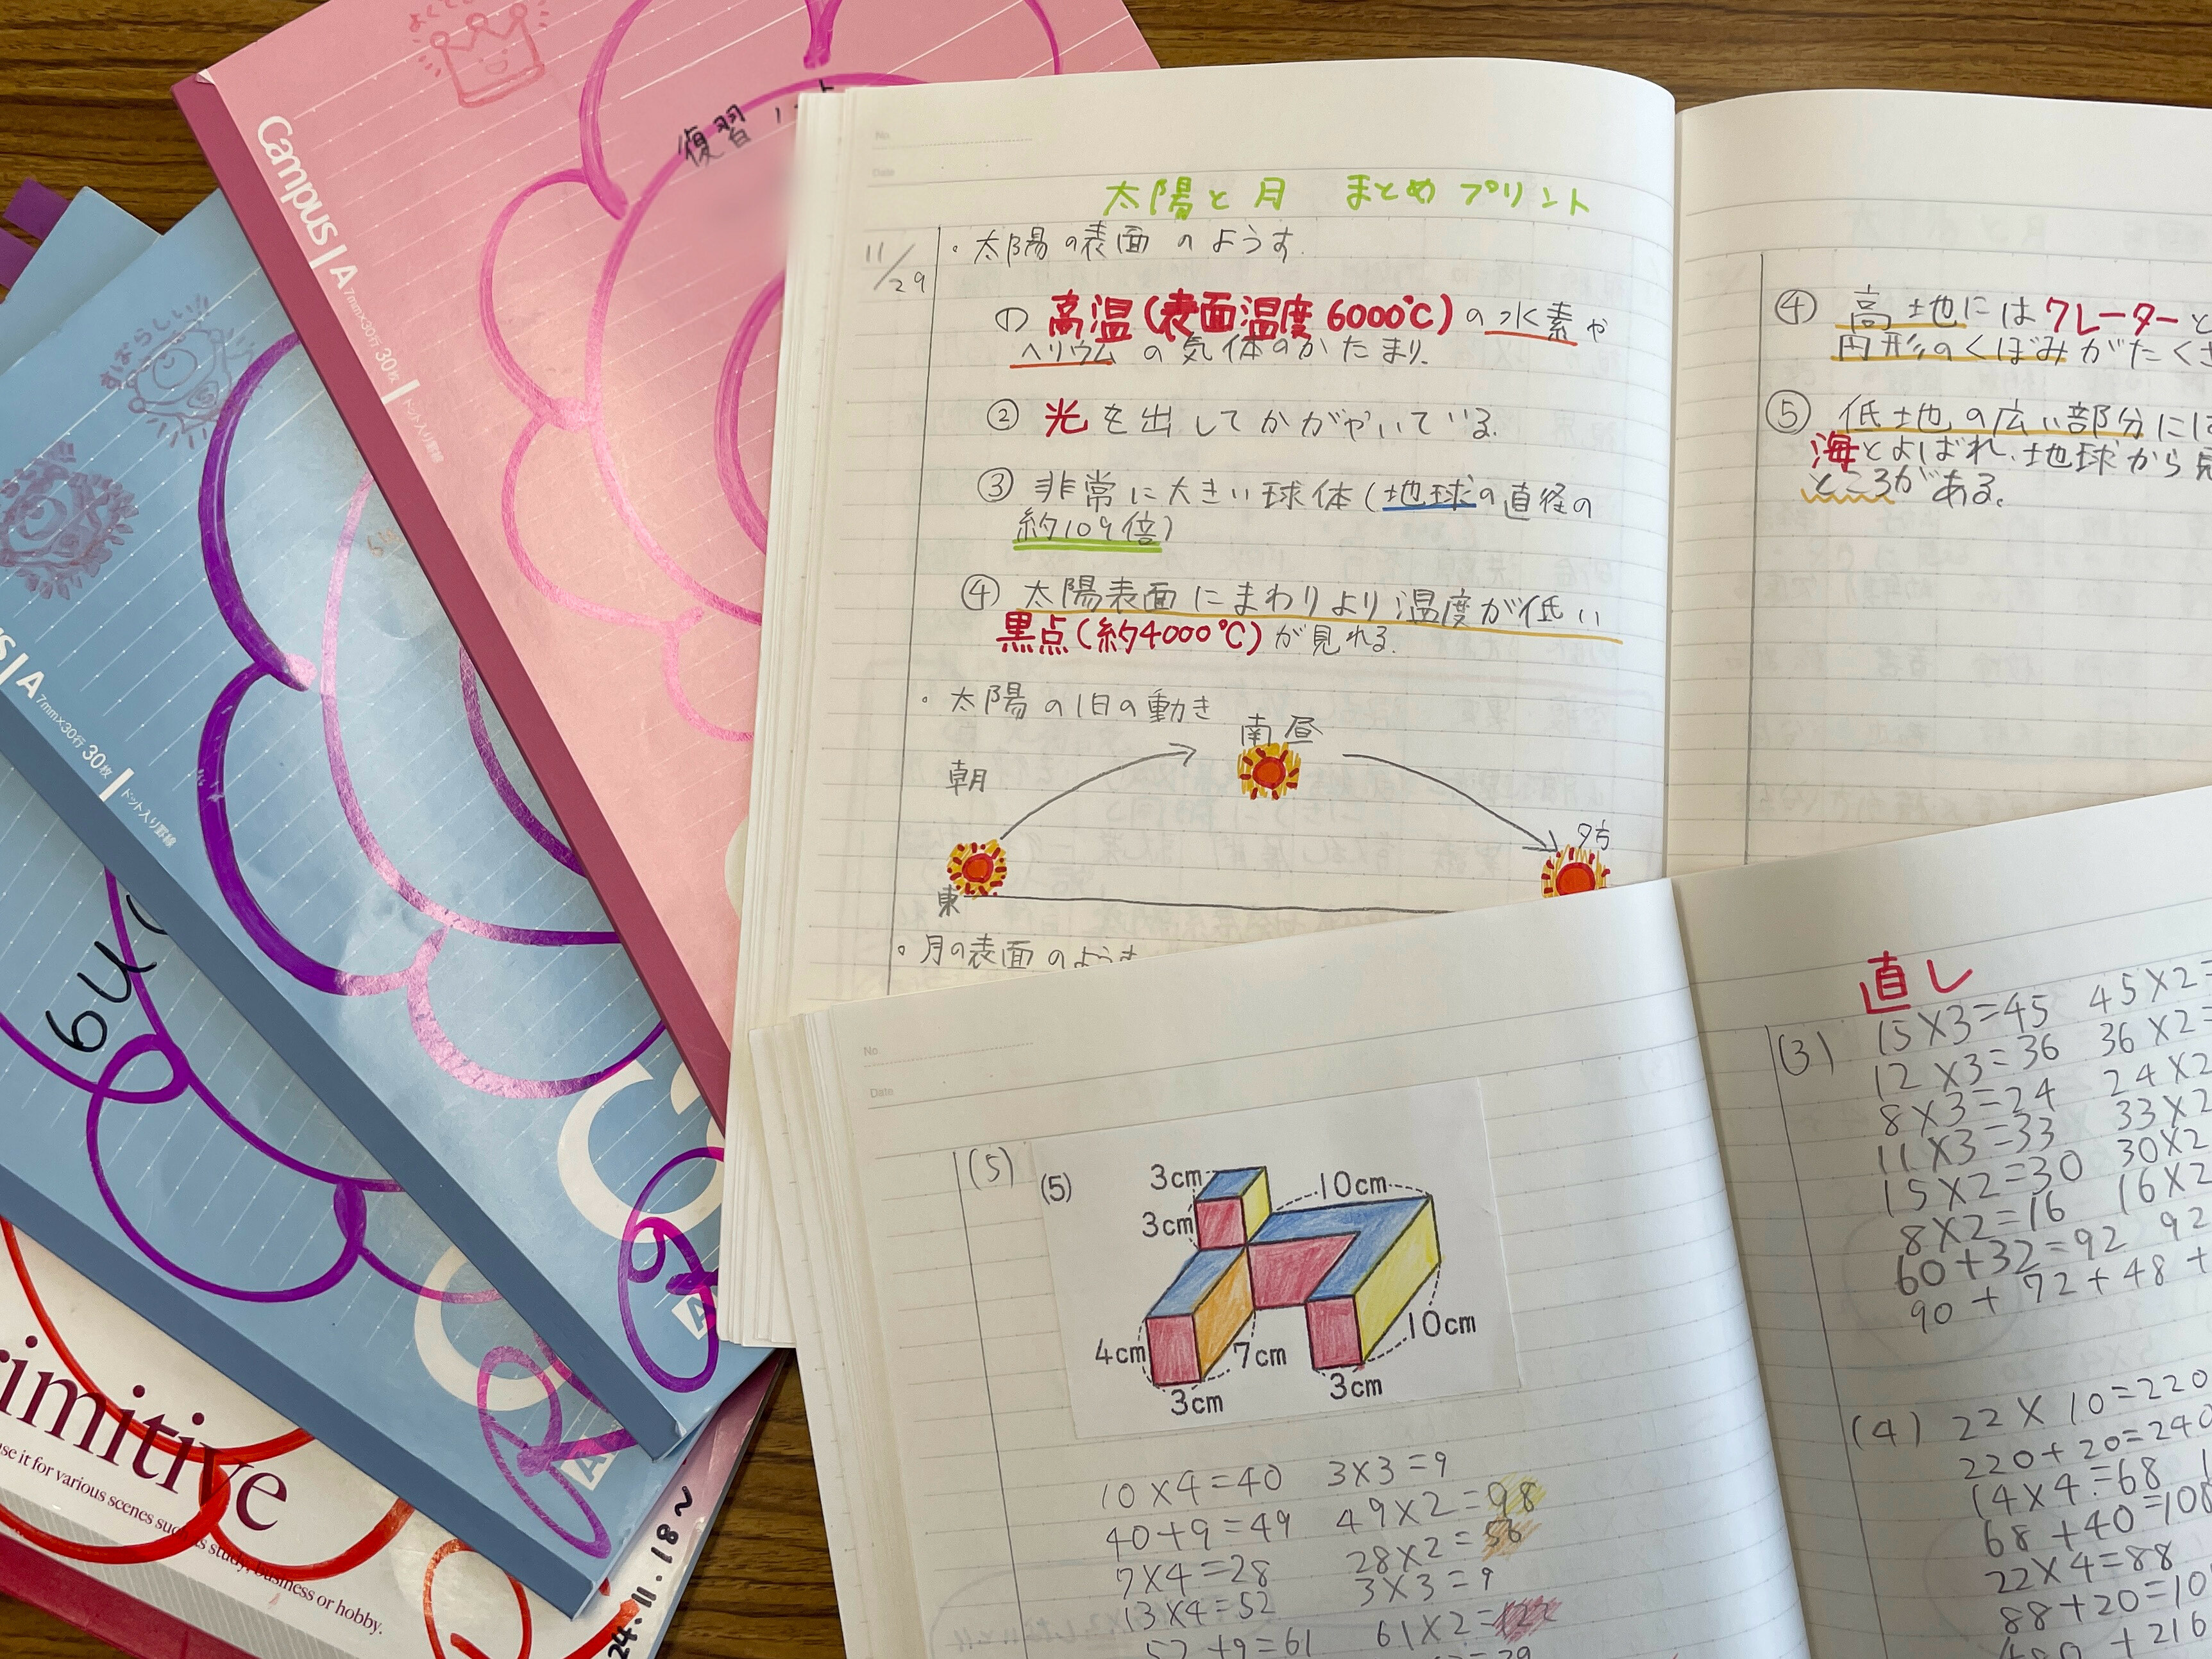 復習ノート
Campus A
7mm×30行 30枚
ドット入り罫線
すばらしい!!
A
7mm×30行 30枚
ドット入り罫線
use it for various scenes such as study, business or hobby.
24.11.18~
No
Date
太陽と月 まとめプリント
11/29
・太陽の表面のようす.
① 高温(表面温度6000℃)の水素や
ヘリウムの気体のかたまり.
② 光を出してかがやいている.
③ 非常に大きい球体(地球の直径の
約109倍)
④ 太陽表面にまわりより温度が低い
黒点(約4000℃)が見れる.
・太陽の1日の動き
南 昼
朝
夕方
東
・月の表面のようす
④ 高土地にはクレーターと
円形のくぼみがたくさ
⑤ 低土地の広い部分には
海とよばれ、地球から見
ところがある。
No
Date
(5)
(5)
3cm
10cm
3cm
4cm
7cm
10cm
3cm
3cm
10×4=40 3×3=9
40+9=49 49×2=98
7×4=28 28×2=56
13×4=52 3×3=9
52+9=61 61×2=122
直し
(3) 15×3=45 45×2=
12×3=36 36×2=
8×3=24 24×2
11×3=33 33×2
15×2=30 30×2
8×2=16 16×2
60+32=92 92
90+72+48+
(4) 22×10=220
220+20=240
14×4=68
68+40=108
22×4=88
88+20=10
+216